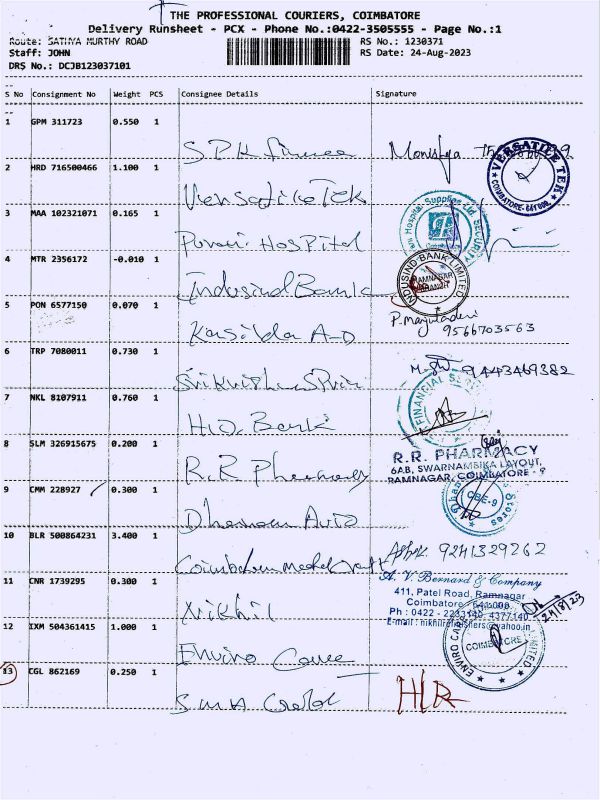 THE PROFESSIONAL COURIERS, COIMBATORE
Delivery Runsheet - PCX - Phone No.:0422-3505555 - Page No.:1
Route: SATHYA MURTHY ROAD RS No.: 1230371
Staff: JOHN RS Date: 24-Aug-2023
DRS No.: DCJB123037101
S No Consignment No Weight PCS Consignee Details Signature
1 GPM 311723 0.550 1
VERSATILE TEK
COIMBATORE- 641 008.
2 HRD 716500466 1.100 1
Versatile Tek
3 MAA 102321071 0.165 1
Hospital Supplies Ltd. SECURITY
Hospital
4 MTR 2356172 -0.010 1
Indusind Bank
INDUSIND BANK LIMITED
RAMNAGAR
BRANCH
5 PON 6577150 0.070 1
9566703563
6 TRP 7080011 0.730 1
9443469382
7 NKL 8107911 0.760 1
Bank
FINANCIAL
8 SLM 326915675 0.200 1
R.R Pharmacy
R.R. PHARMACY
6AB, SWARNAMBIKA LAYOUT,
RAMNAGAR, COIMBATORE - 9
9 CMM 228927 0.300 1
CBE-9
Stores
10 BLR 500864231 3.400 1
9241329262
11 CNR 1739295 0.300 1
Nikhil
A. V. Bernard & Company
411, Patel Road, Ramnagar
Coimbatore - 641 009.
E-mail : nikhilrefinishers@yahoo.in
24/8/23
12 IXM 504361415 1.000 1
Enviro Care
ENVIRO CARE
COIMBATORE
13 CGL 862169 0.250 1
H/R